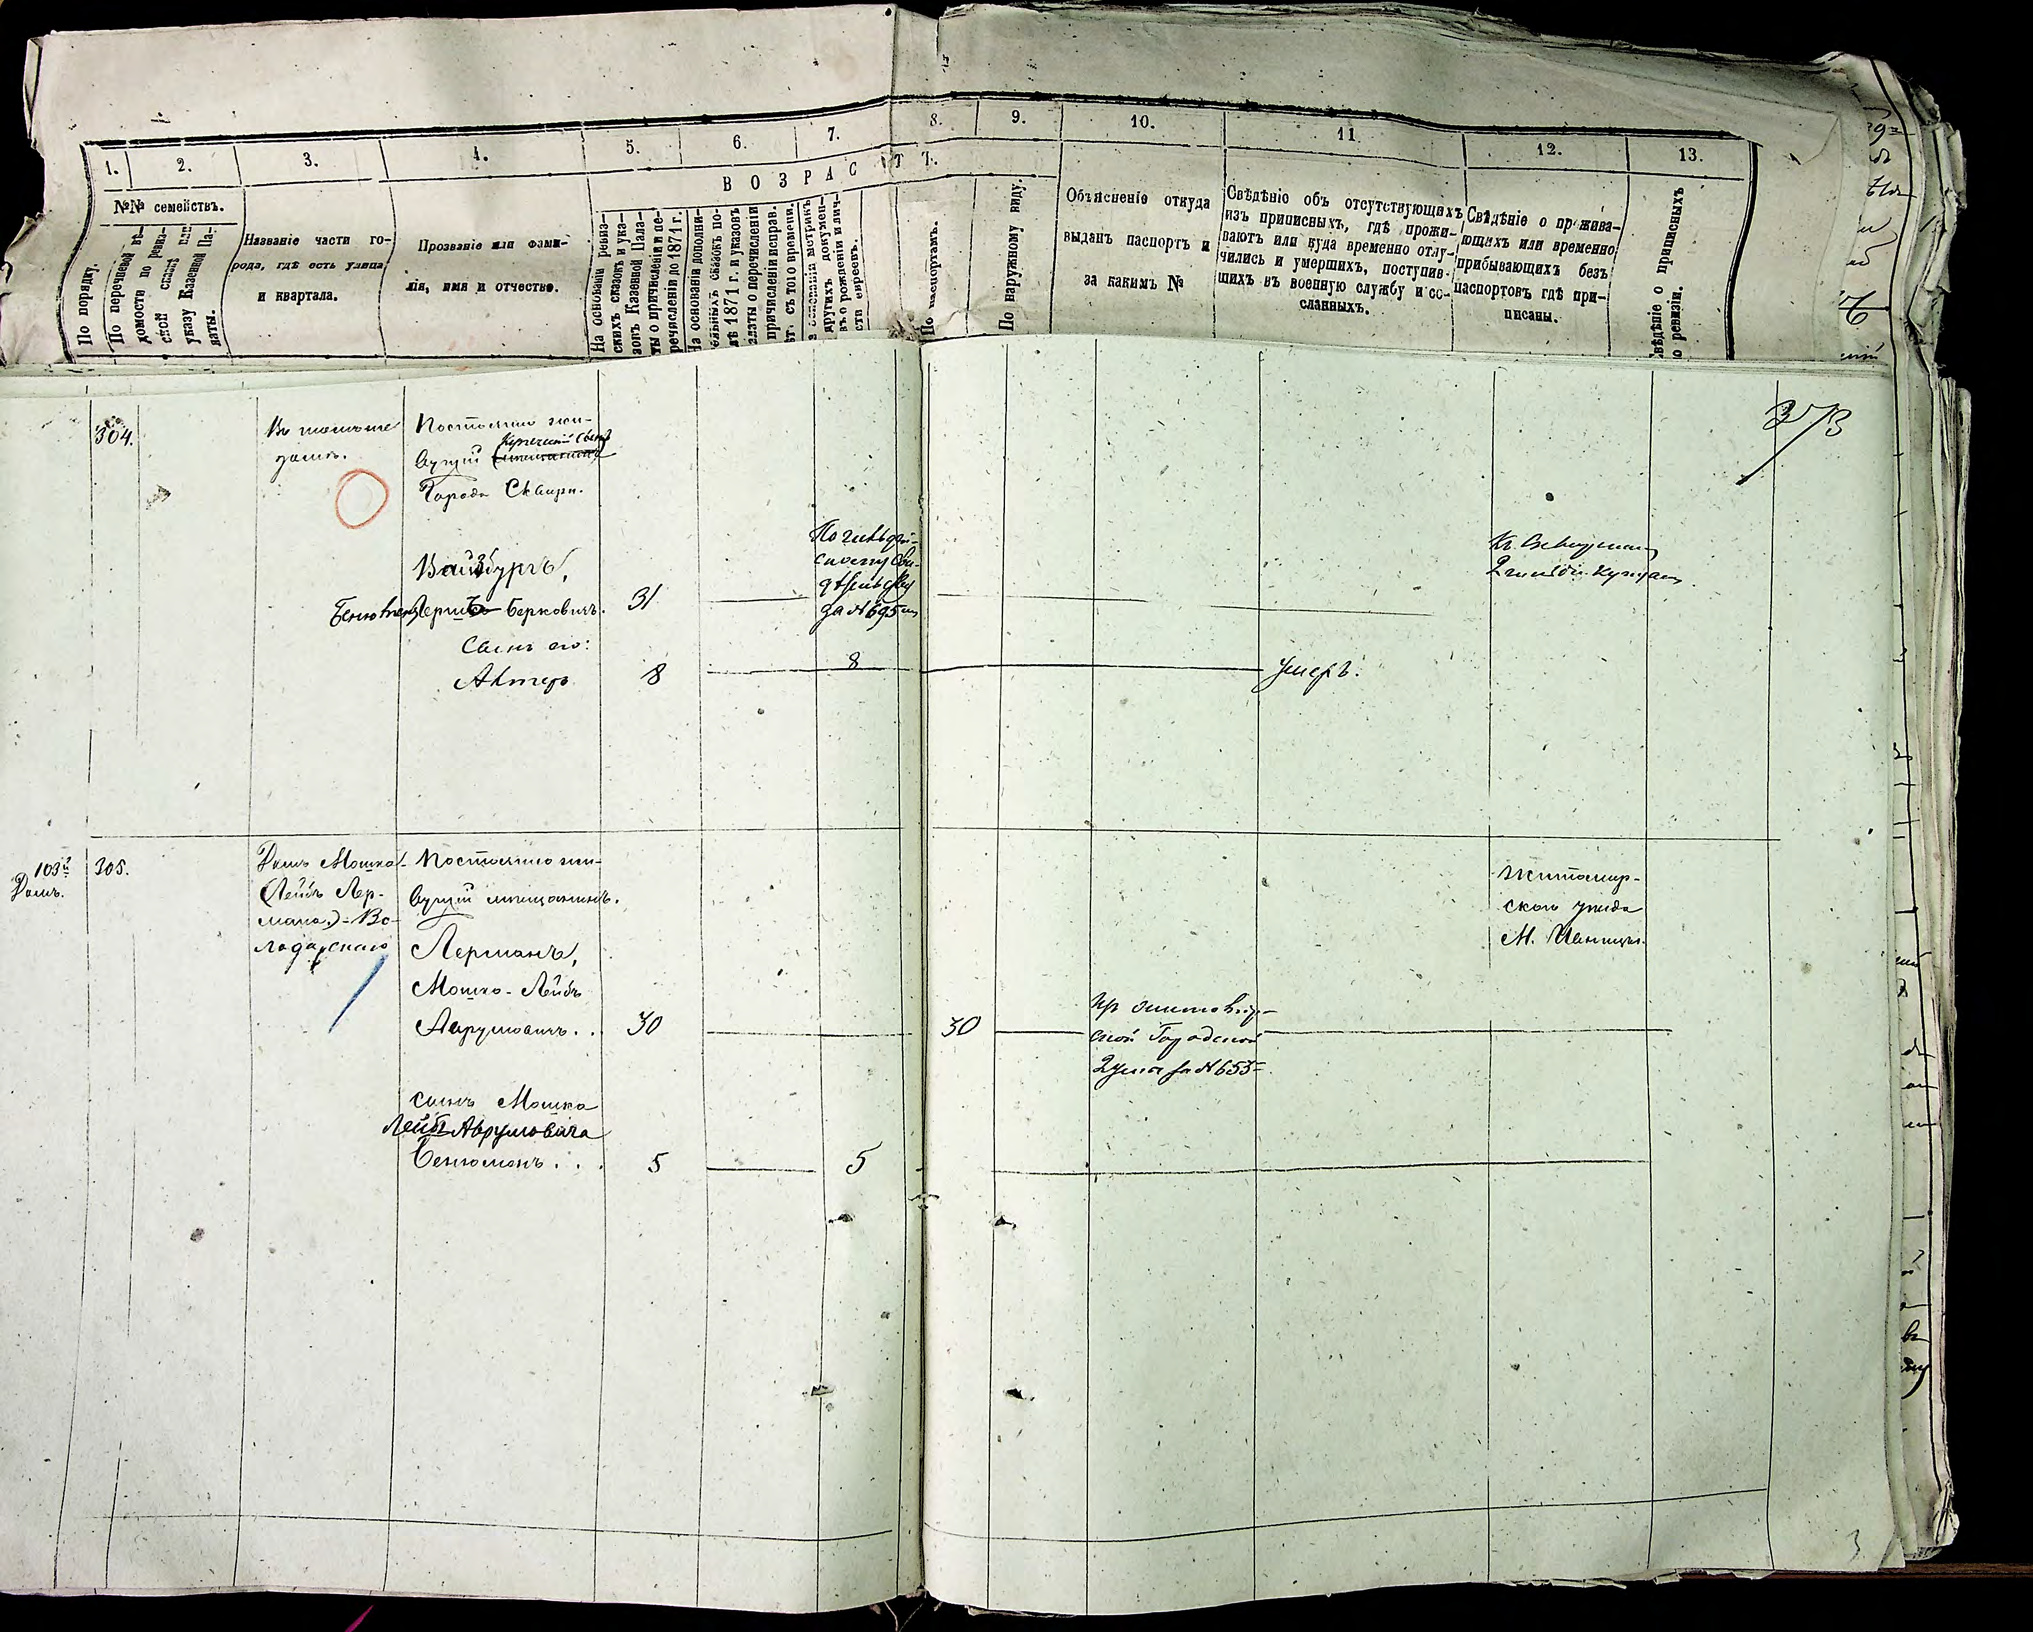 1.
2.
3.
4.
5.
6.
7.
8.
9.
10.
11
12.
13.
В О З Р А С Т Ъ.
№№ семействъ.
По порядку.
По перечневой вѣ-
домости по ревиз-
ской сказкѣ или
указу Казенной Па-
латы.
Названіе части го-
рода, гдѣ есть улица
и квартала.
Прозваніе или фами-
лія, имя и отчество.
На основаніи ревиз-
скихъ сказокъ и ука-
зовъ Казенной Пала-
ты о причисленіи и пе-
речисленіи до 1871 г.
На основаніи дополни-
тельныхъ сказокъ по-
слѣ 1871 г. и указовъ
палаты о перечисленіи
причисленіи исправ.
лѣтъ съ того времени.
На основаніи метрикъ
другихъ докумен-
въ о рожденіи и лич-
сти евреевъ.
По паспортамъ.
По наружному виду.
Объясненіе откуда
выданъ паспортъ и
за какимъ №
Свѣдѣніе объ отсутствующихъ
изъ приписныхъ, гдѣ прожи-
ваютъ или куда временно отлу-
чились и умершихъ, поступив-
шихъ въ военную службу и со-
сланныхъ.
Свѣдѣніе о прожива-
ющихъ или временно
прибывающихъ безъ
паспортовъ гдѣ при-
писаны.
Свѣдѣніе о приписныхъ
по ревизіи.
373
304.
Въ томъ же
домѣ.
Постоянно жи-
вущій
Купеческій Сынъ
Города Сквири.
Вайзбургъ,
Берковичъ.
31
за № 695
Сынъ его:
8
8
умеръ.
103й
Домъ.
305.
Домъ Мошка
(Лейбъ Лер-
мана) - Во-
лодарскаго
Постоянно жи-
вущій мѣщанинъ.
Лерманъ,
Мошко-Лейбъ
Аврумовичъ. . 30
30
ской Городской
Думы за № 653
Житомир-
скаго уѣзда
М. Ивницы.
сынъ Мошка
Лейбъ Аврумовича
Бенюмонъ. . . 5
5
3